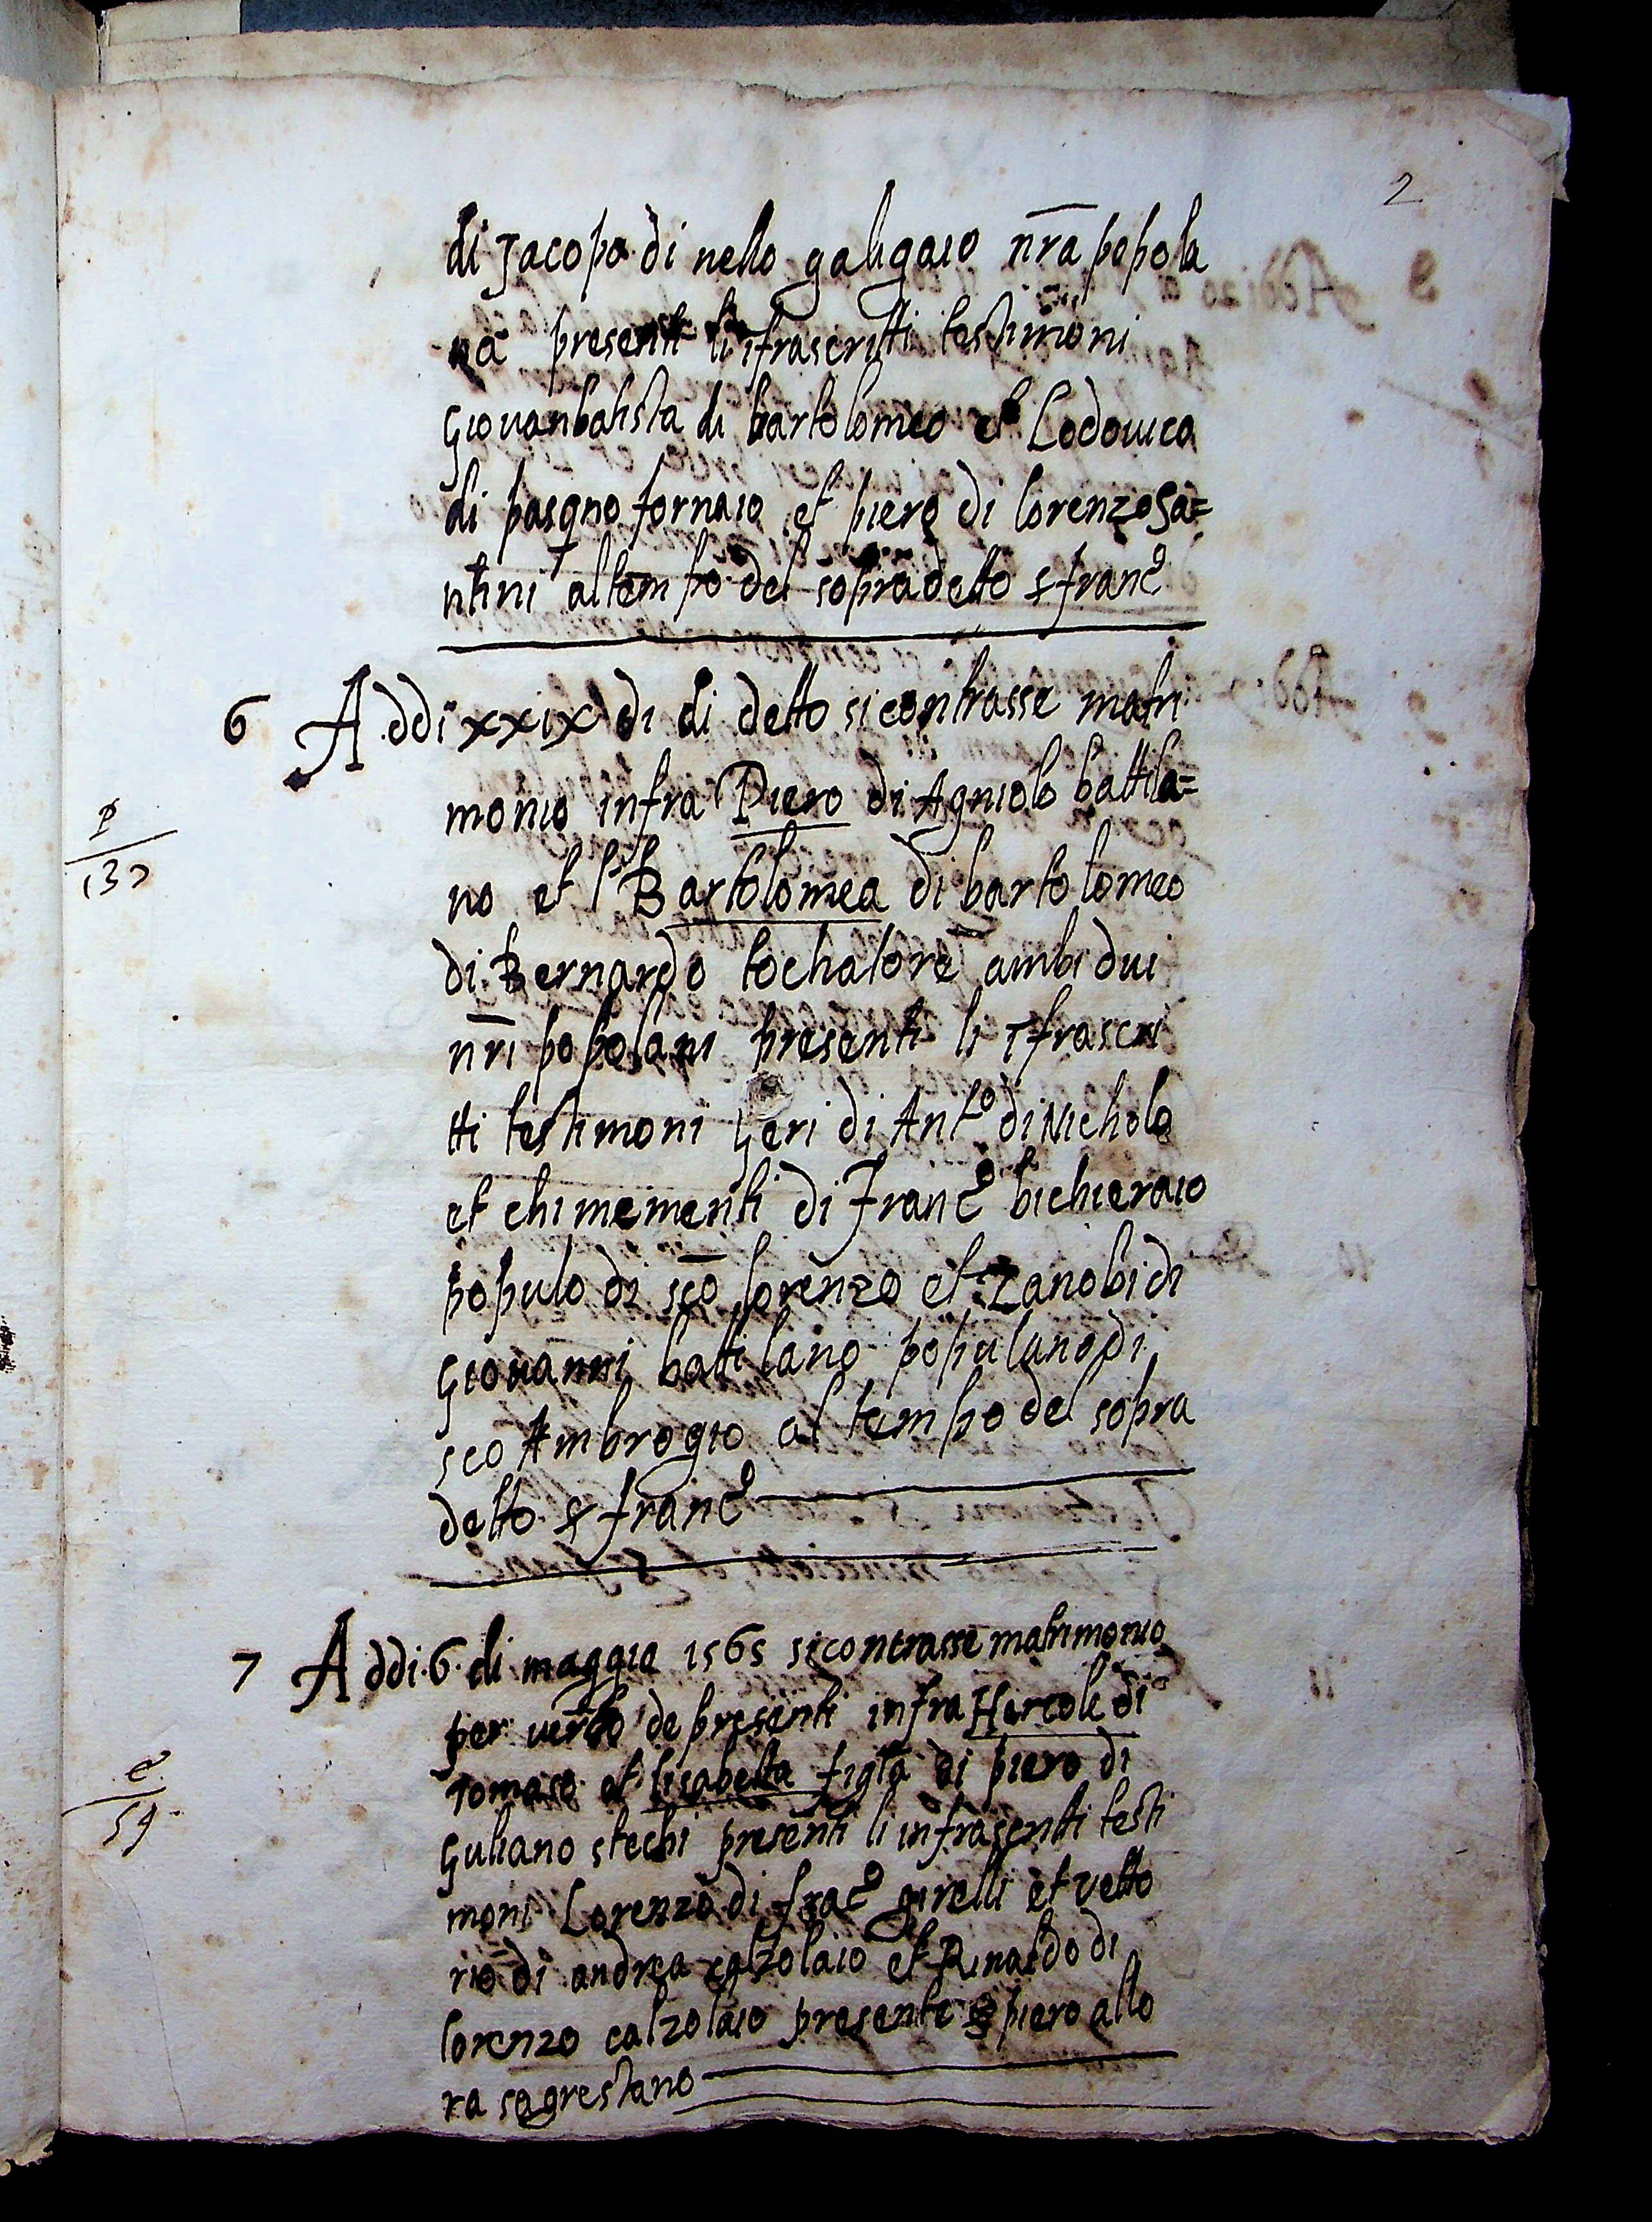 2
di Jacopo di nello galigaio nr̄a popola
na presenti li ifrascritti testimoni
Giouanbatista di bartolomeo et Lodouico
di pasqno fornaio et piero di lorenzo Sa=
ntini al tempo del sopradetto s franc.o
6 Addi xxix di di detto si contrasse matri
monio infra Piero di Agniolo battila=
P
137
no et l Bartolomea di bartolomeo
di Bernardo tochatore ambi dui
nr̄i popolani presenti li ifrascri
tti testimoni Geri di Ant.o di Nicholo
et chimementi di Franc.o bichieraio
populo di sc̄o lorenzo et Zanobi di
Giouanni battilano populano di
sco Ambrogio al tempo del sopra
detto s franc.o
7 Addi .6. di maggio 1565 si contrasse matrimonio
per verba de presenti infra Hercole di
e
59
Tomaso et lisabetta figla di piero di
Guliano stechi presenti li infrascritti testi
moni Lorenzo di frac.o girelli et vetto
rio di andrea calzolaio et Rinaldo di
lorenzo calzolaio presente s piero allo
ra sagrestano